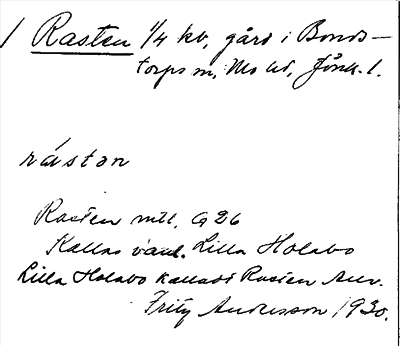 1 Rasten 1/4 kv, gård i Bonds-
torps sn, Mo hd, Jönk. l.
råstan
Rasten mtl. G 26
Kallas vanl. Lilla Holabo
Lilla Holabo kalladt Rasten Anv.
Frity Andersson 1930.